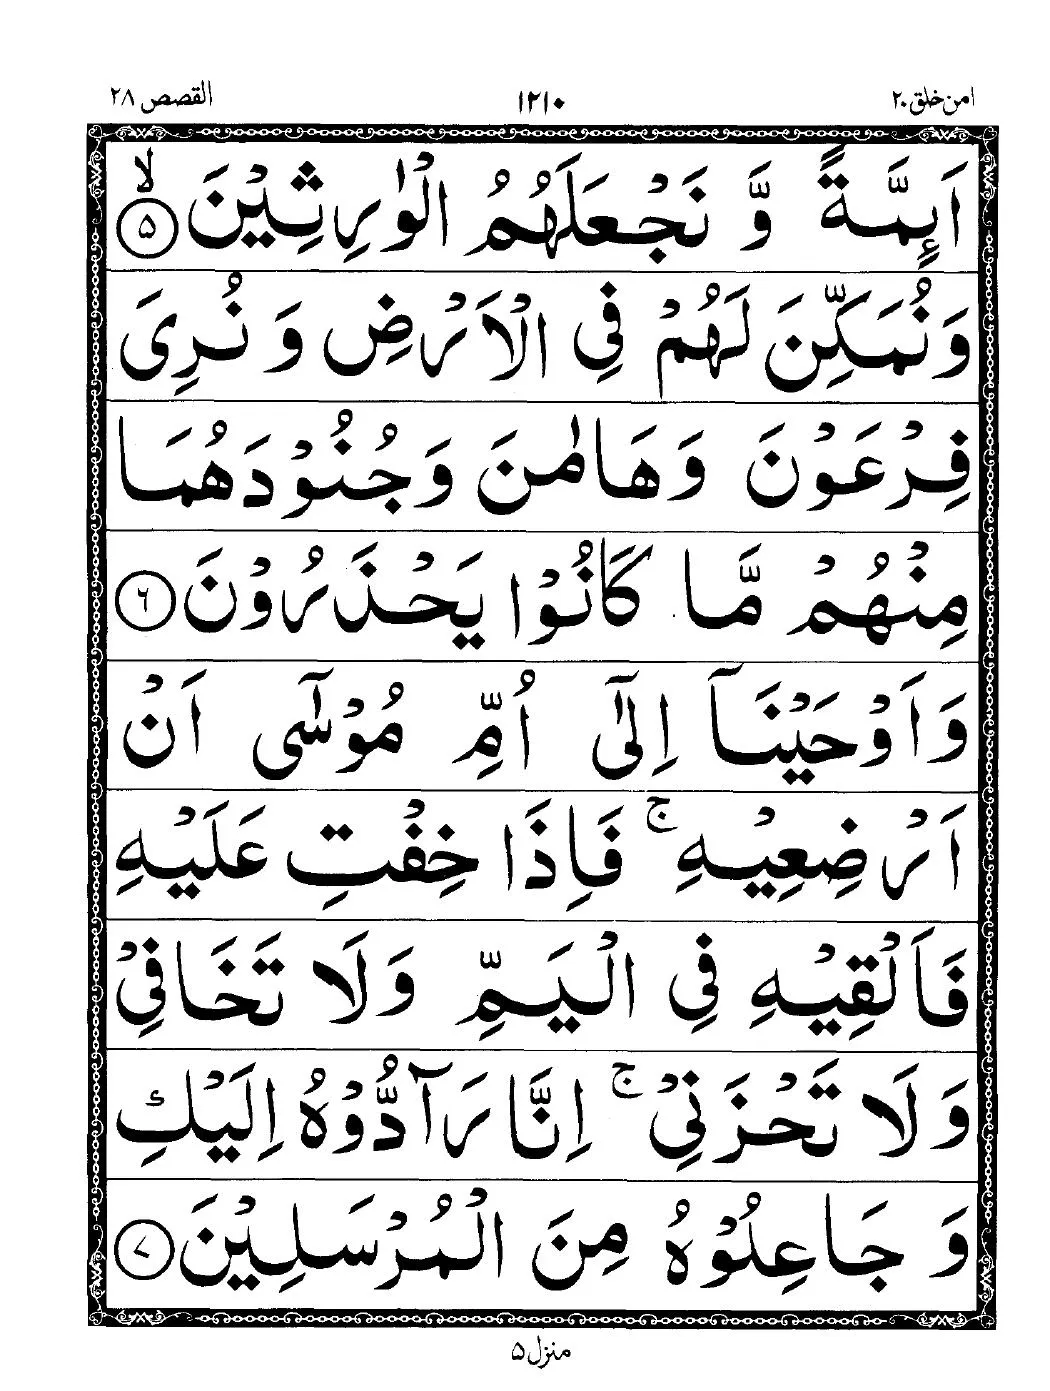 امن خلق ۲۰ ۱۲۱۰ القصص ۲۸
اَىِٕمَّةً وَّ نَجْعَلَهُمُ الْوٰرِثِیْنَ ﴿۵﴾ۙ
وَنُمَكِّنَ لَهُمْ فِی الْاَرْضِ وَ نُرِیَ
فِرْعَوْنَ وَهَامٰنَ وَجُنُوْدَهُمَا
مِنْهُمْ مَّا كَانُوْا یَحْذَرُوْنَ ﴿۶﴾
وَاَوْحَیْنَاۤ اِلٰۤی اُمِّ مُوْسٰۤی اَنْ
اَرْضِعِیْهِ ۚ فَاِذَا خِفْتِ عَلَیْهِ
فَاَلْقِیْهِ فِی الْیَمِّ وَلَا تَخَافِیْ
وَلَا تَحْزَنِیْ ۚ اِنَّا رَآدُّوْهُ اِلَیْكِ
وَ جَاعِلُوْهُ مِنَ الْمُرْسَلِیْنَ ﴿۷﴾
منزل ۵